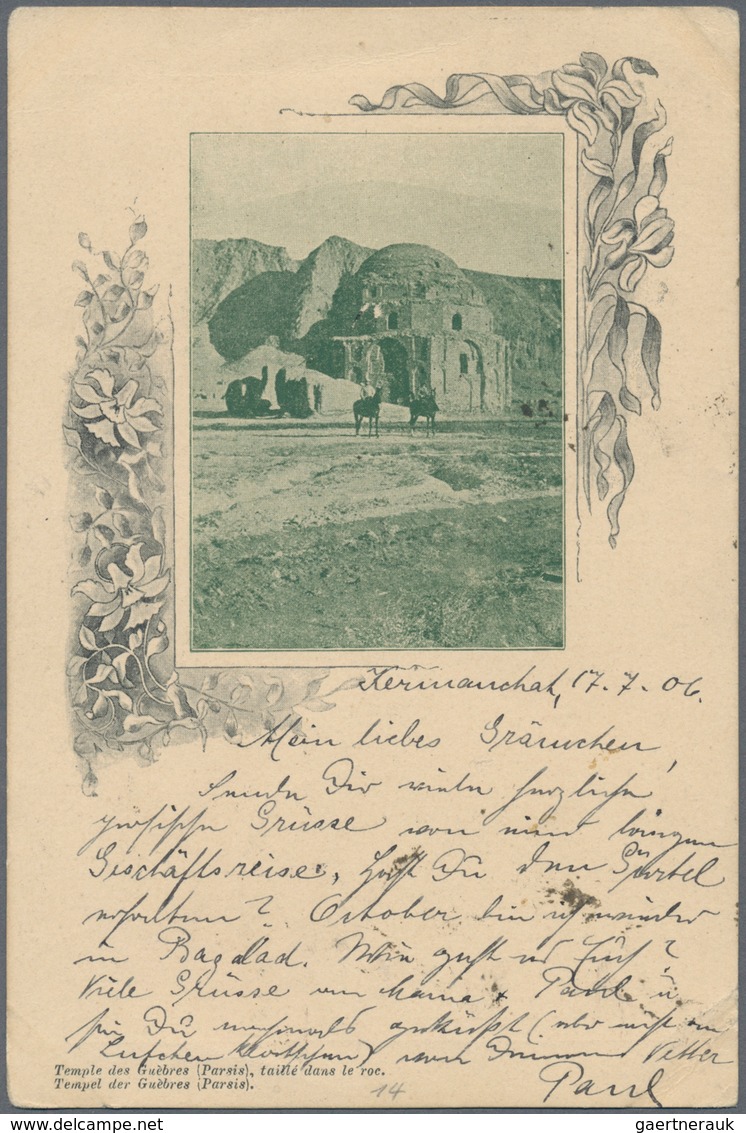 Kermanchah, 17. 7. 06.
Mein liebes
Sende Dir viele herzliche
persische Grüsse von einer langen
Geschäftsreise, hast Du den Gürtel
erhalten? October bin ich wieder
in Bagdad. Wie geht es Euch?
Viele Grüsse an Mama + Paul u
sei Du nochmals geküsst (aber nicht
von Deinem Vetter
Paul
Temple des Guèbres (Parsis), taillé dans le roc.
Tempel der Guèbres (Parsis).
14
gaertnerauk@delcampe.com